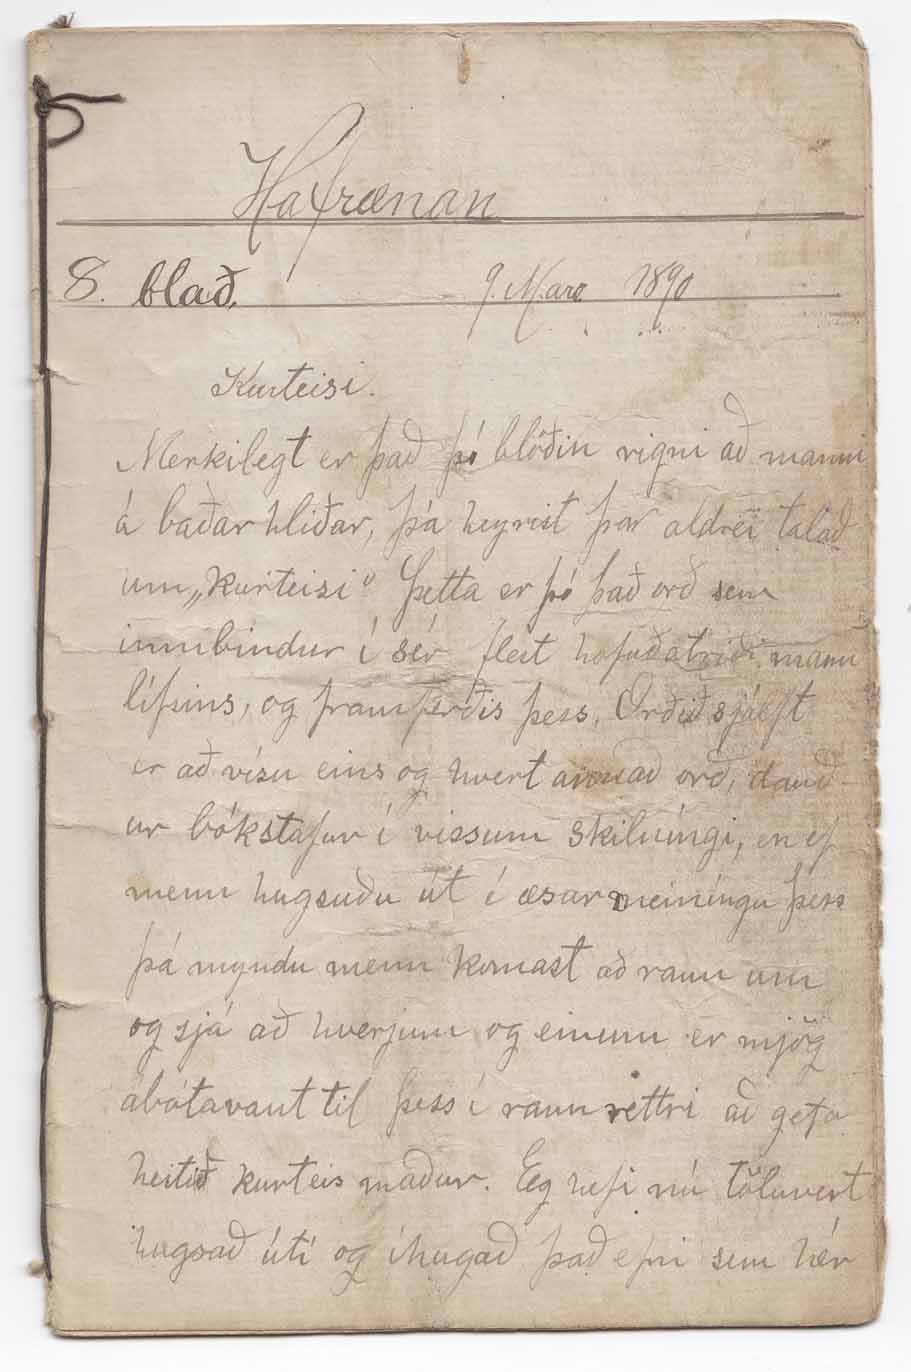 Hafrænan
8. blað. 9. Mars 1890
Kurteisi.
Merkilegt er það þó blöðin rigni að manni
á baðar hliðar, þá heyrist þar aldrei talað
um „kurteisi“ Þetta er þó það orð sem
innibindur í sér flest hofuðatriði mann
lífsins, og framferðis þess. Orðið sjálft
er að vísu eins og hvert annað orð, dauð-
ur bókstafur í vissum skilníngi, en ef
menn hugsuðu út í æsar meiníngu þess
þá myndu menn komast að raun um
og sjá að hverjum og einum er mjög
ábótavant til þess í raun rettri að geta
heitið kurteis maður. Eg hefi nú töluvert
hugsað útí og íhugað það efni sem hér